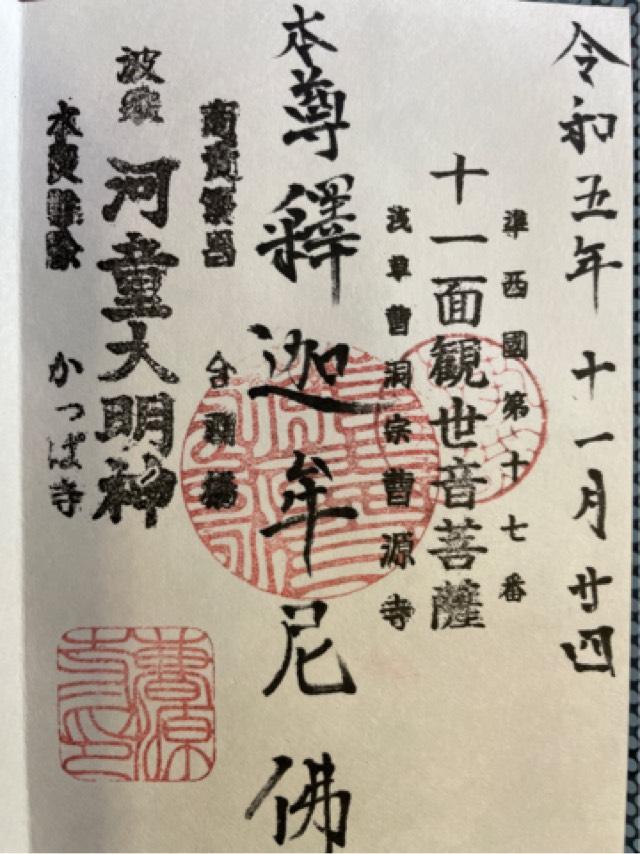 令和五年十一月廿四
準西國第十七番
十一面観世音菩薩
浅草曹洞宗曹源寺
本尊釋迦牟尼佛
商売繁昌 合羽橋
波乗 河童大明神
水難 かっぱ寺
曹源寺印